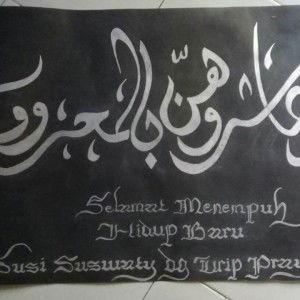 وعاشروهنّ بالمعروف
Selamat Menempuh
Hidup Baru
Susi Suswaty dg Urip